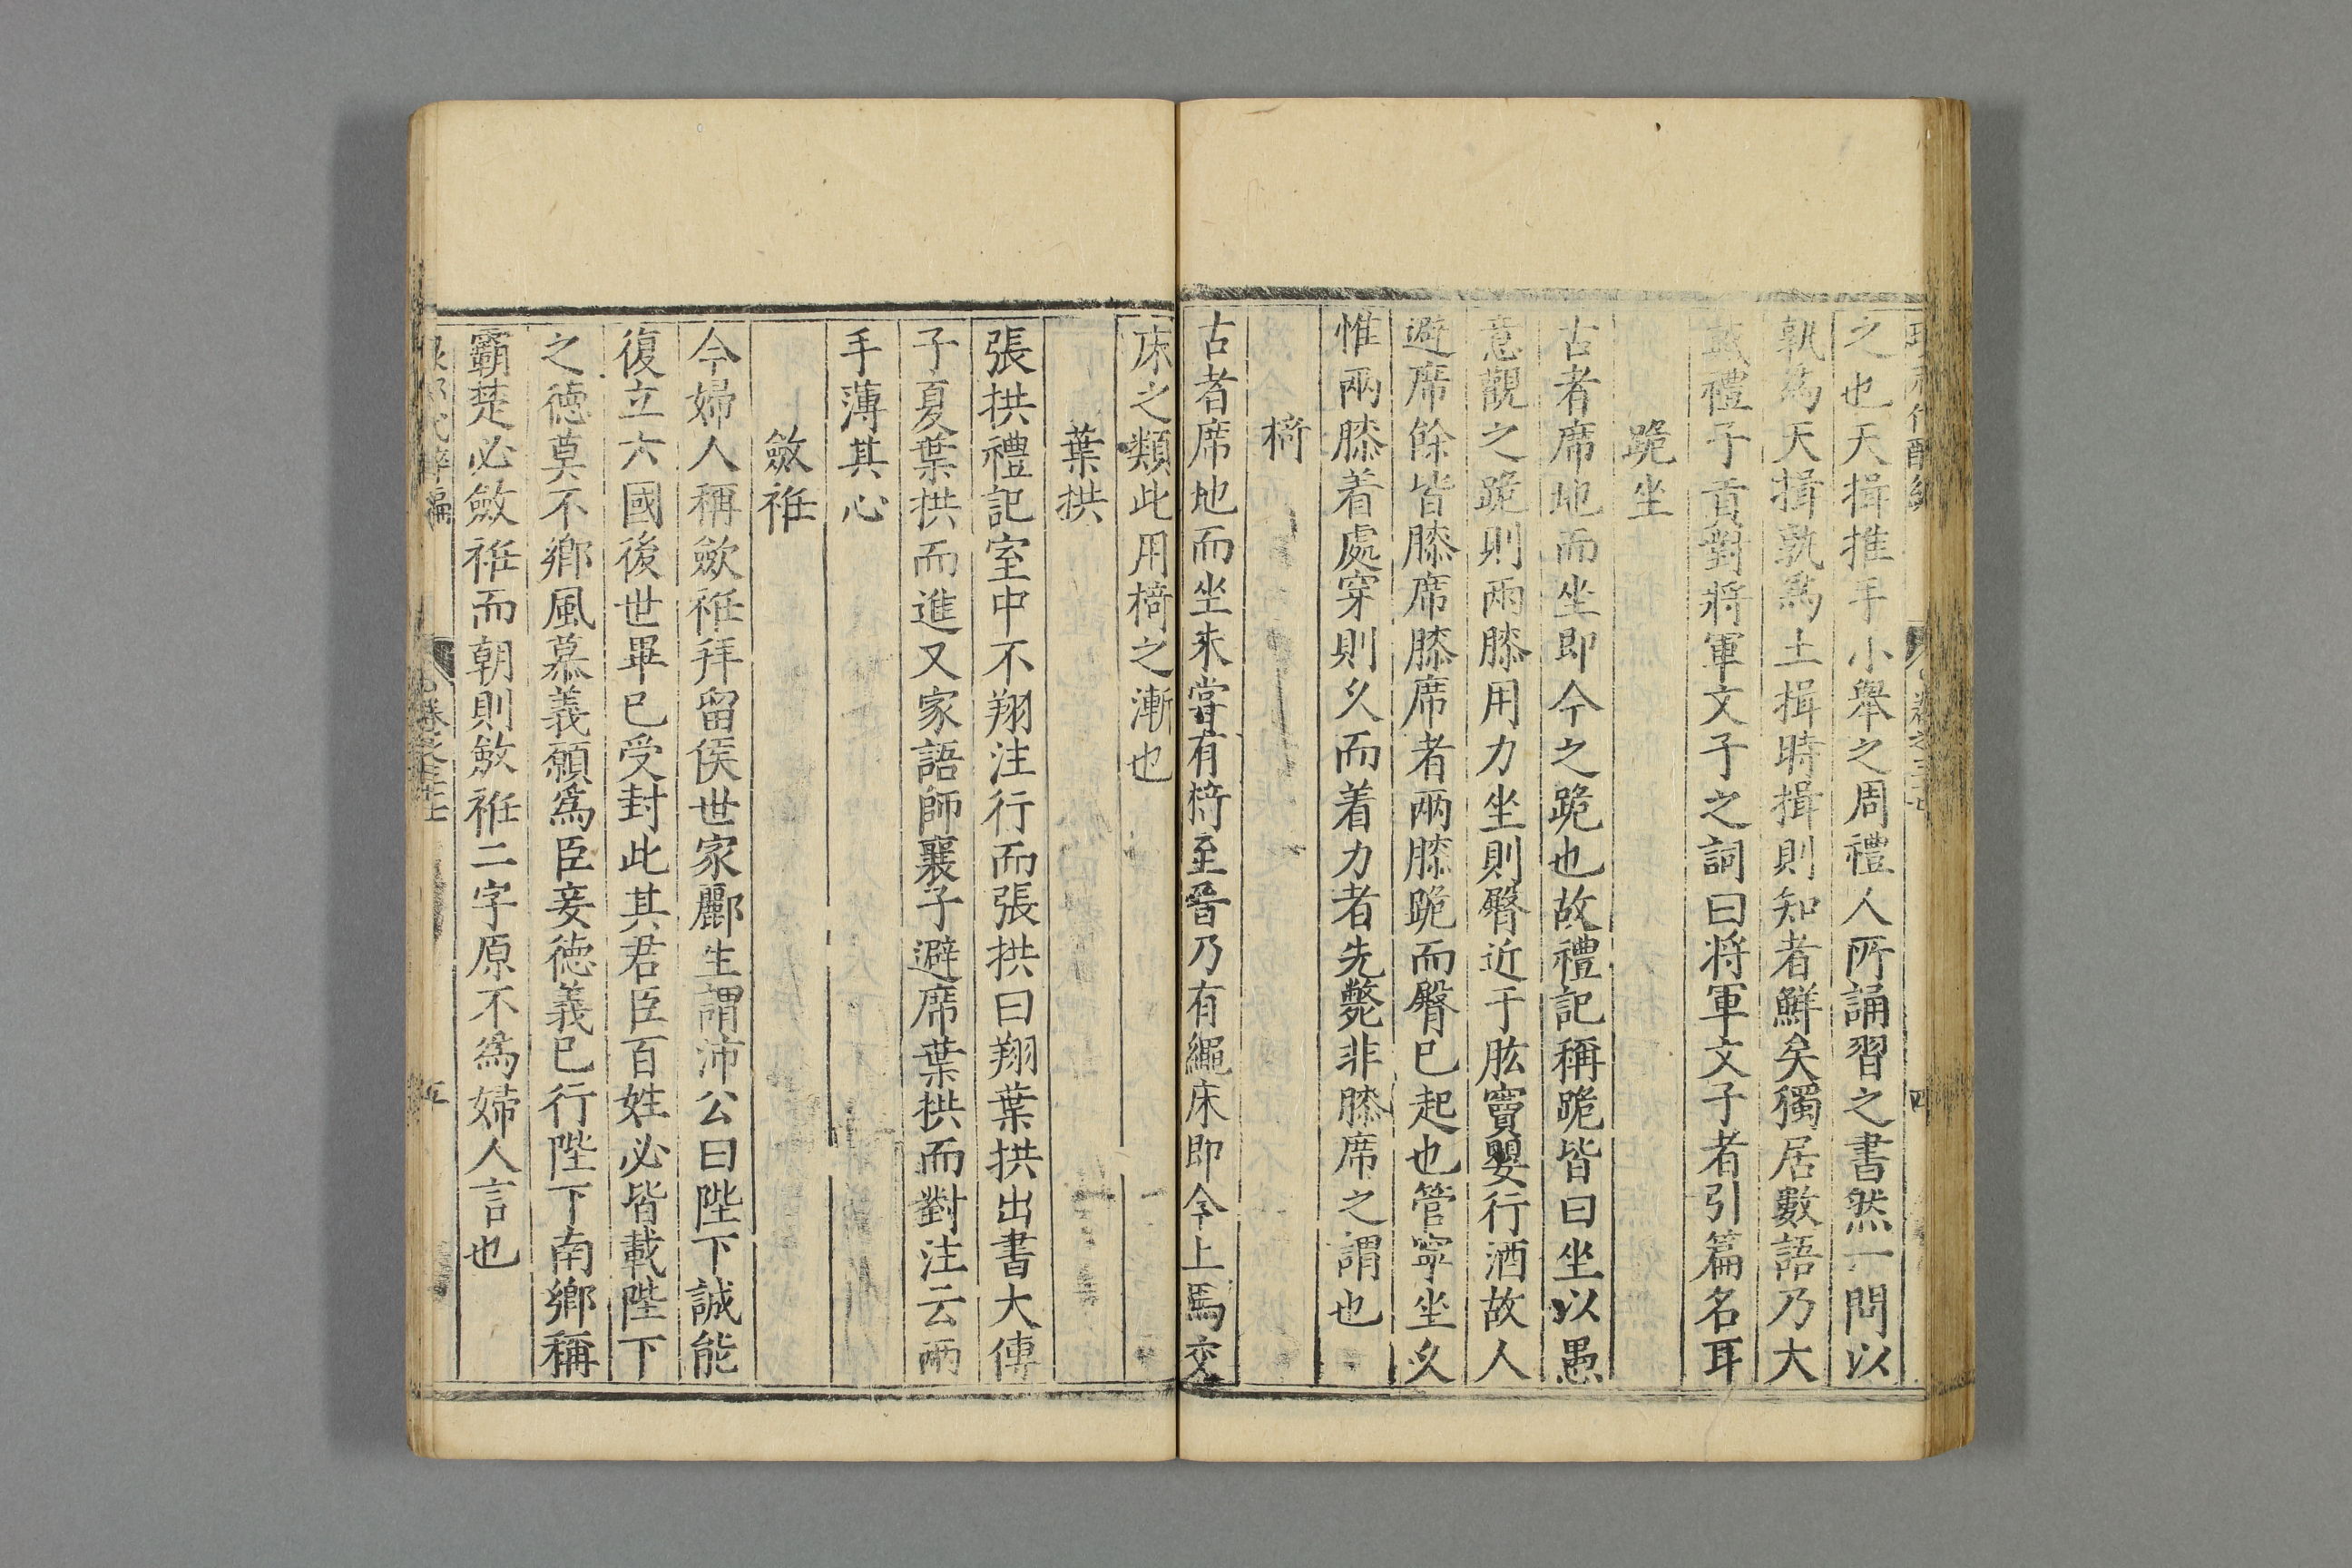 之也天揖推手小舉之周禮人所誦習之書然一問以
孰為天揖孰為土揖時揖則知者鮮矣獨居數語乃大
戴禮子貢對將軍文子之詞曰將軍文子者引篇名耳
跪坐
古者席地而坐即今之跪也故禮記稱跪皆曰坐以愚
意觀之跪則兩膝用力坐則臀近于肱竇嬰行酒故人
避席餘皆膝席膝席者兩膝跪而臀已起也管寧坐久
惟兩膝着處穿則久而着力者先斃非膝席之謂也
椅
古者席地而坐未嘗有椅至晉乃有繩床即今上馬交
床之類此用椅之漸也
葉拱
張拱禮記室中不翔注行而張拱曰翔葉拱出書大傳
子夏葉拱而進又家語師襄子避席葉拱而對注云兩
手薄其心
斂袵
今婦人稱斂袵拜留侯世家酈生謂沛公曰陛下誠能
復立六國後世畢已受封此其君臣百姓必皆載陛下
之德莫不鄉風慕義願為臣妾德義已行陛下南鄉稱
霸楚必斂袵而朝則斂袵二字原不為婦人言也
五